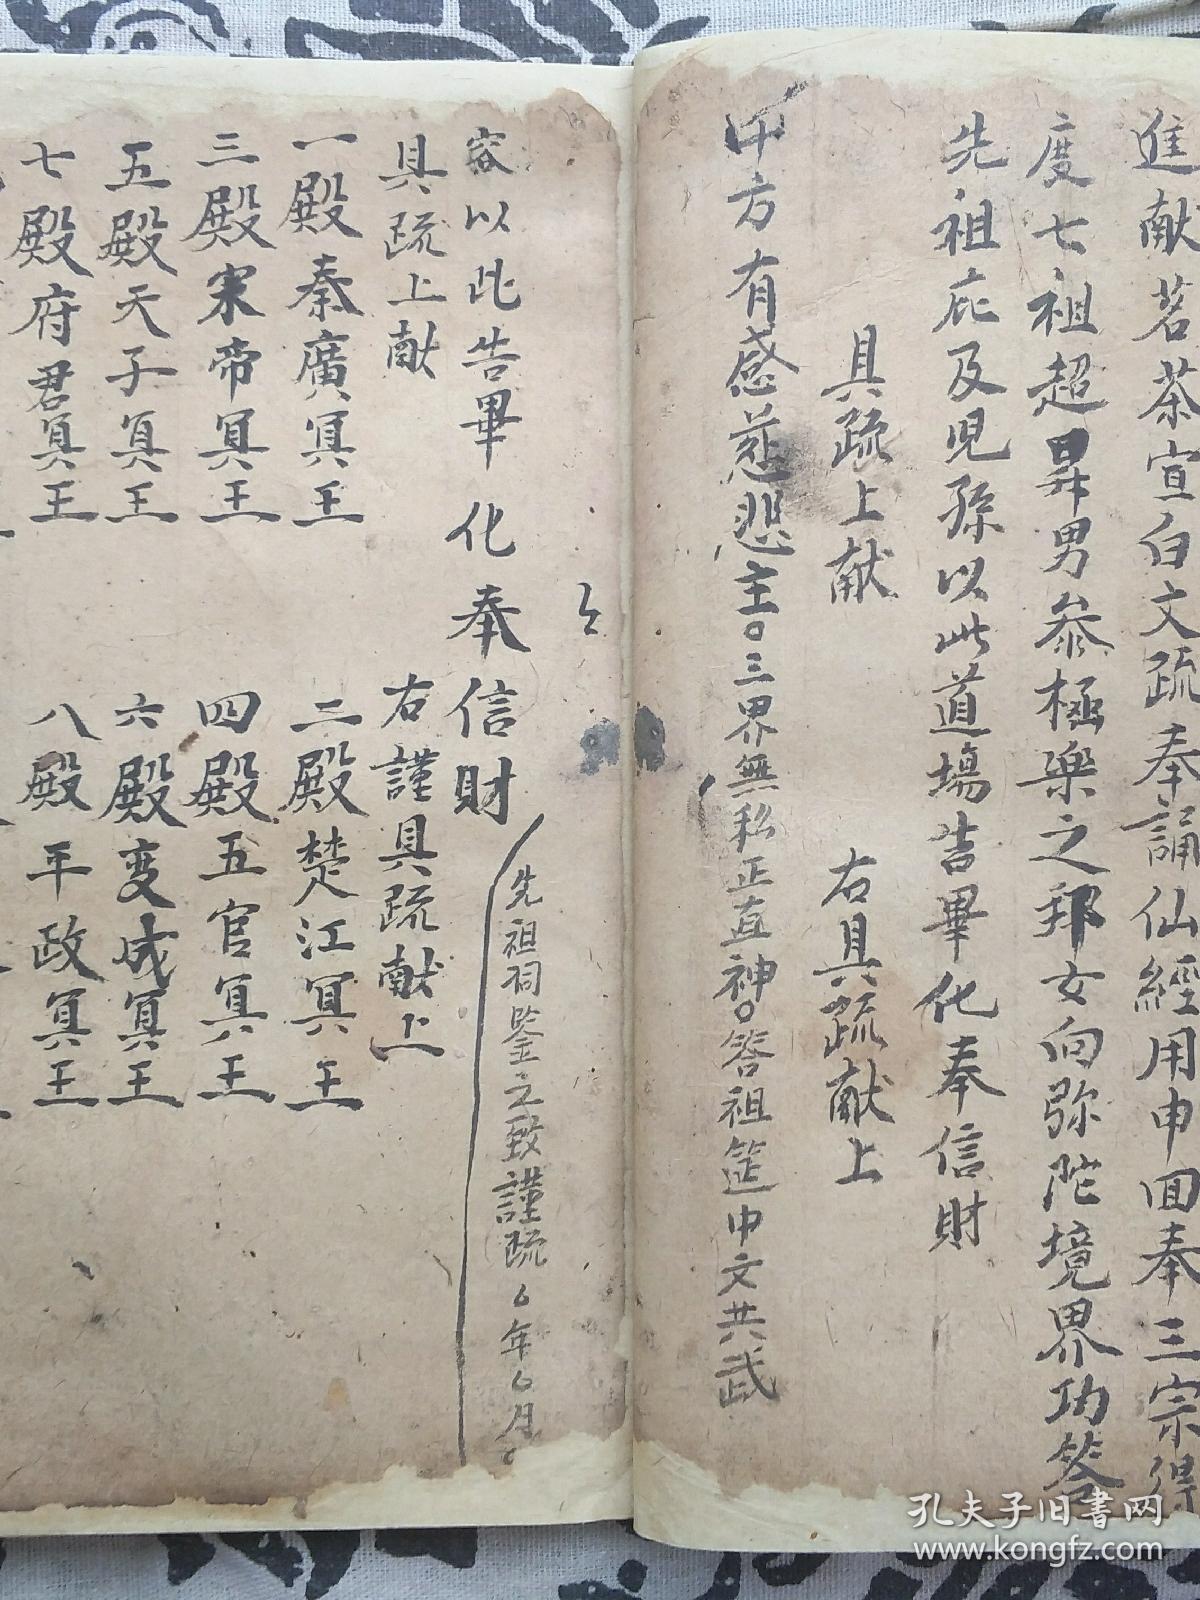 進献茗茶宣白文疏奉誦仙經用申回奉三宗得
度七祖超昇男叅極樂之邦女向弥陀境界功答
先祖庇及児孫以此道場告畢化奉信財
具疏上献
右具疏献上
十方有感慈悲主。三界無私正直神。答祖筵中文共武
容以此告畢
化奉信財
先祖祠鑒之致謹疏
年
月
具疏上献
右謹具疏献上
一殿秦廣冥王
二殿楚江冥王
三殿宋帝冥王
四殿五官冥王
五殿天子冥王
六殿变成冥王
七殿府君冥王
八殿平政冥王
孔夫子旧书网
www.kongfz.com